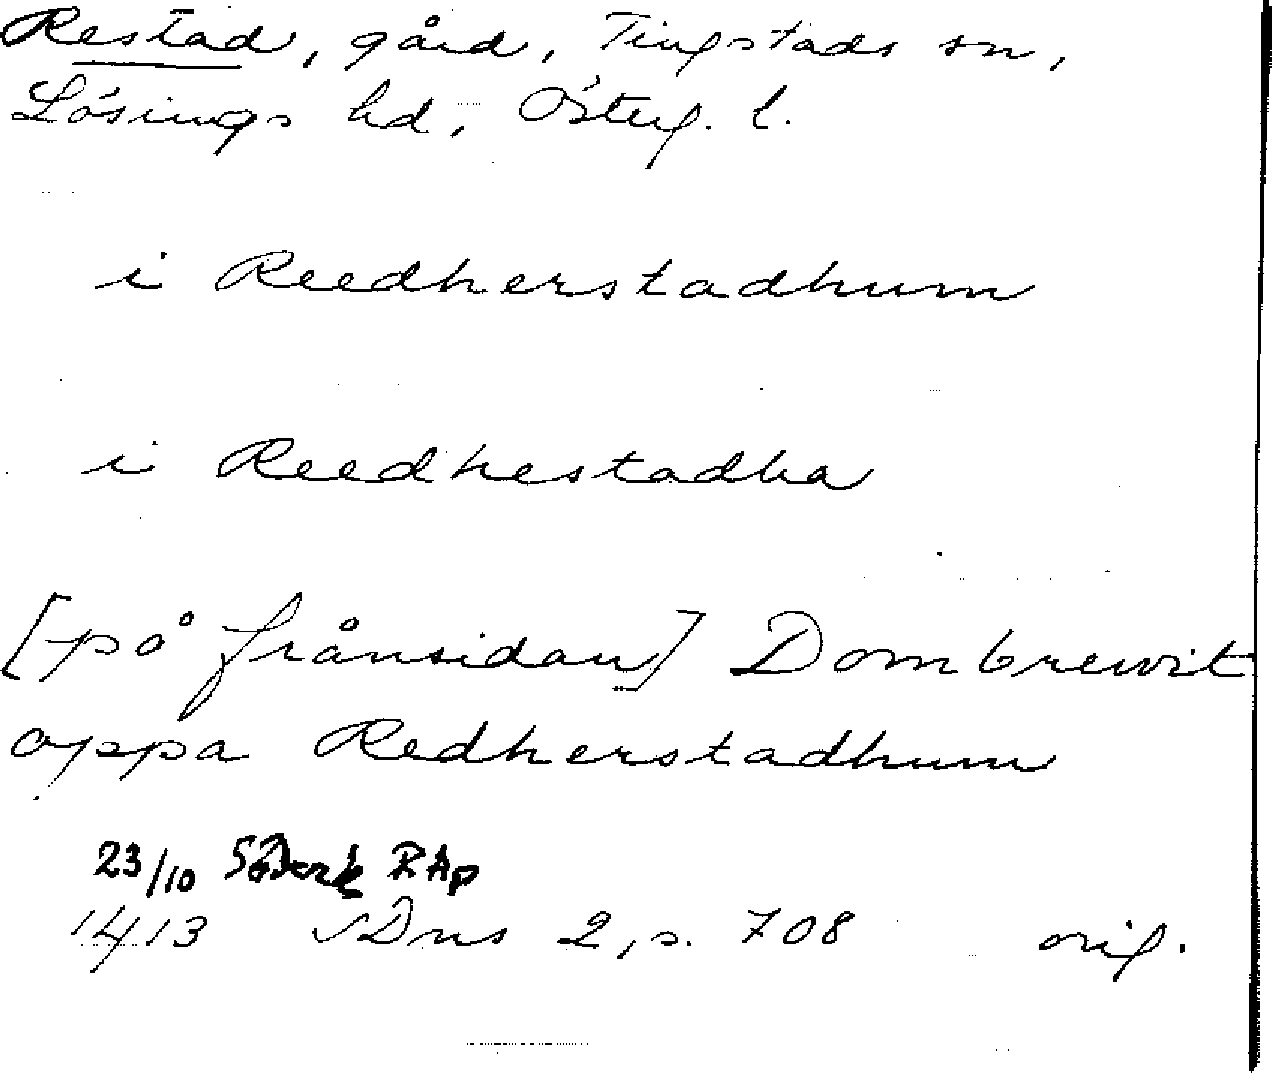 Restad, gård, Tingstads sn,
Lösings hd, Österg. l.
i Reedherstadhum
i Reedhestadha
[på frånsidan] Dombrewit
oppa Redherstadhum
23/10 Söderk RAp
1413 SDns 2, s. 708 orig.